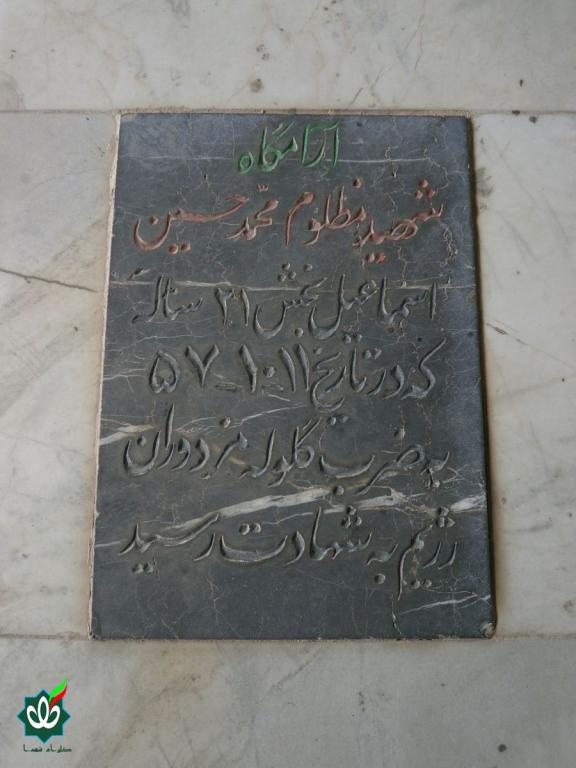 آرامگاه
شهید مظلوم محمد حسین
اسماعیل بخش ۳۱ ساله
که در تاریخ ۱۱-۱۰-۵۷
به ضرب گلوله مزدوران
رژیم به شهادت رسید